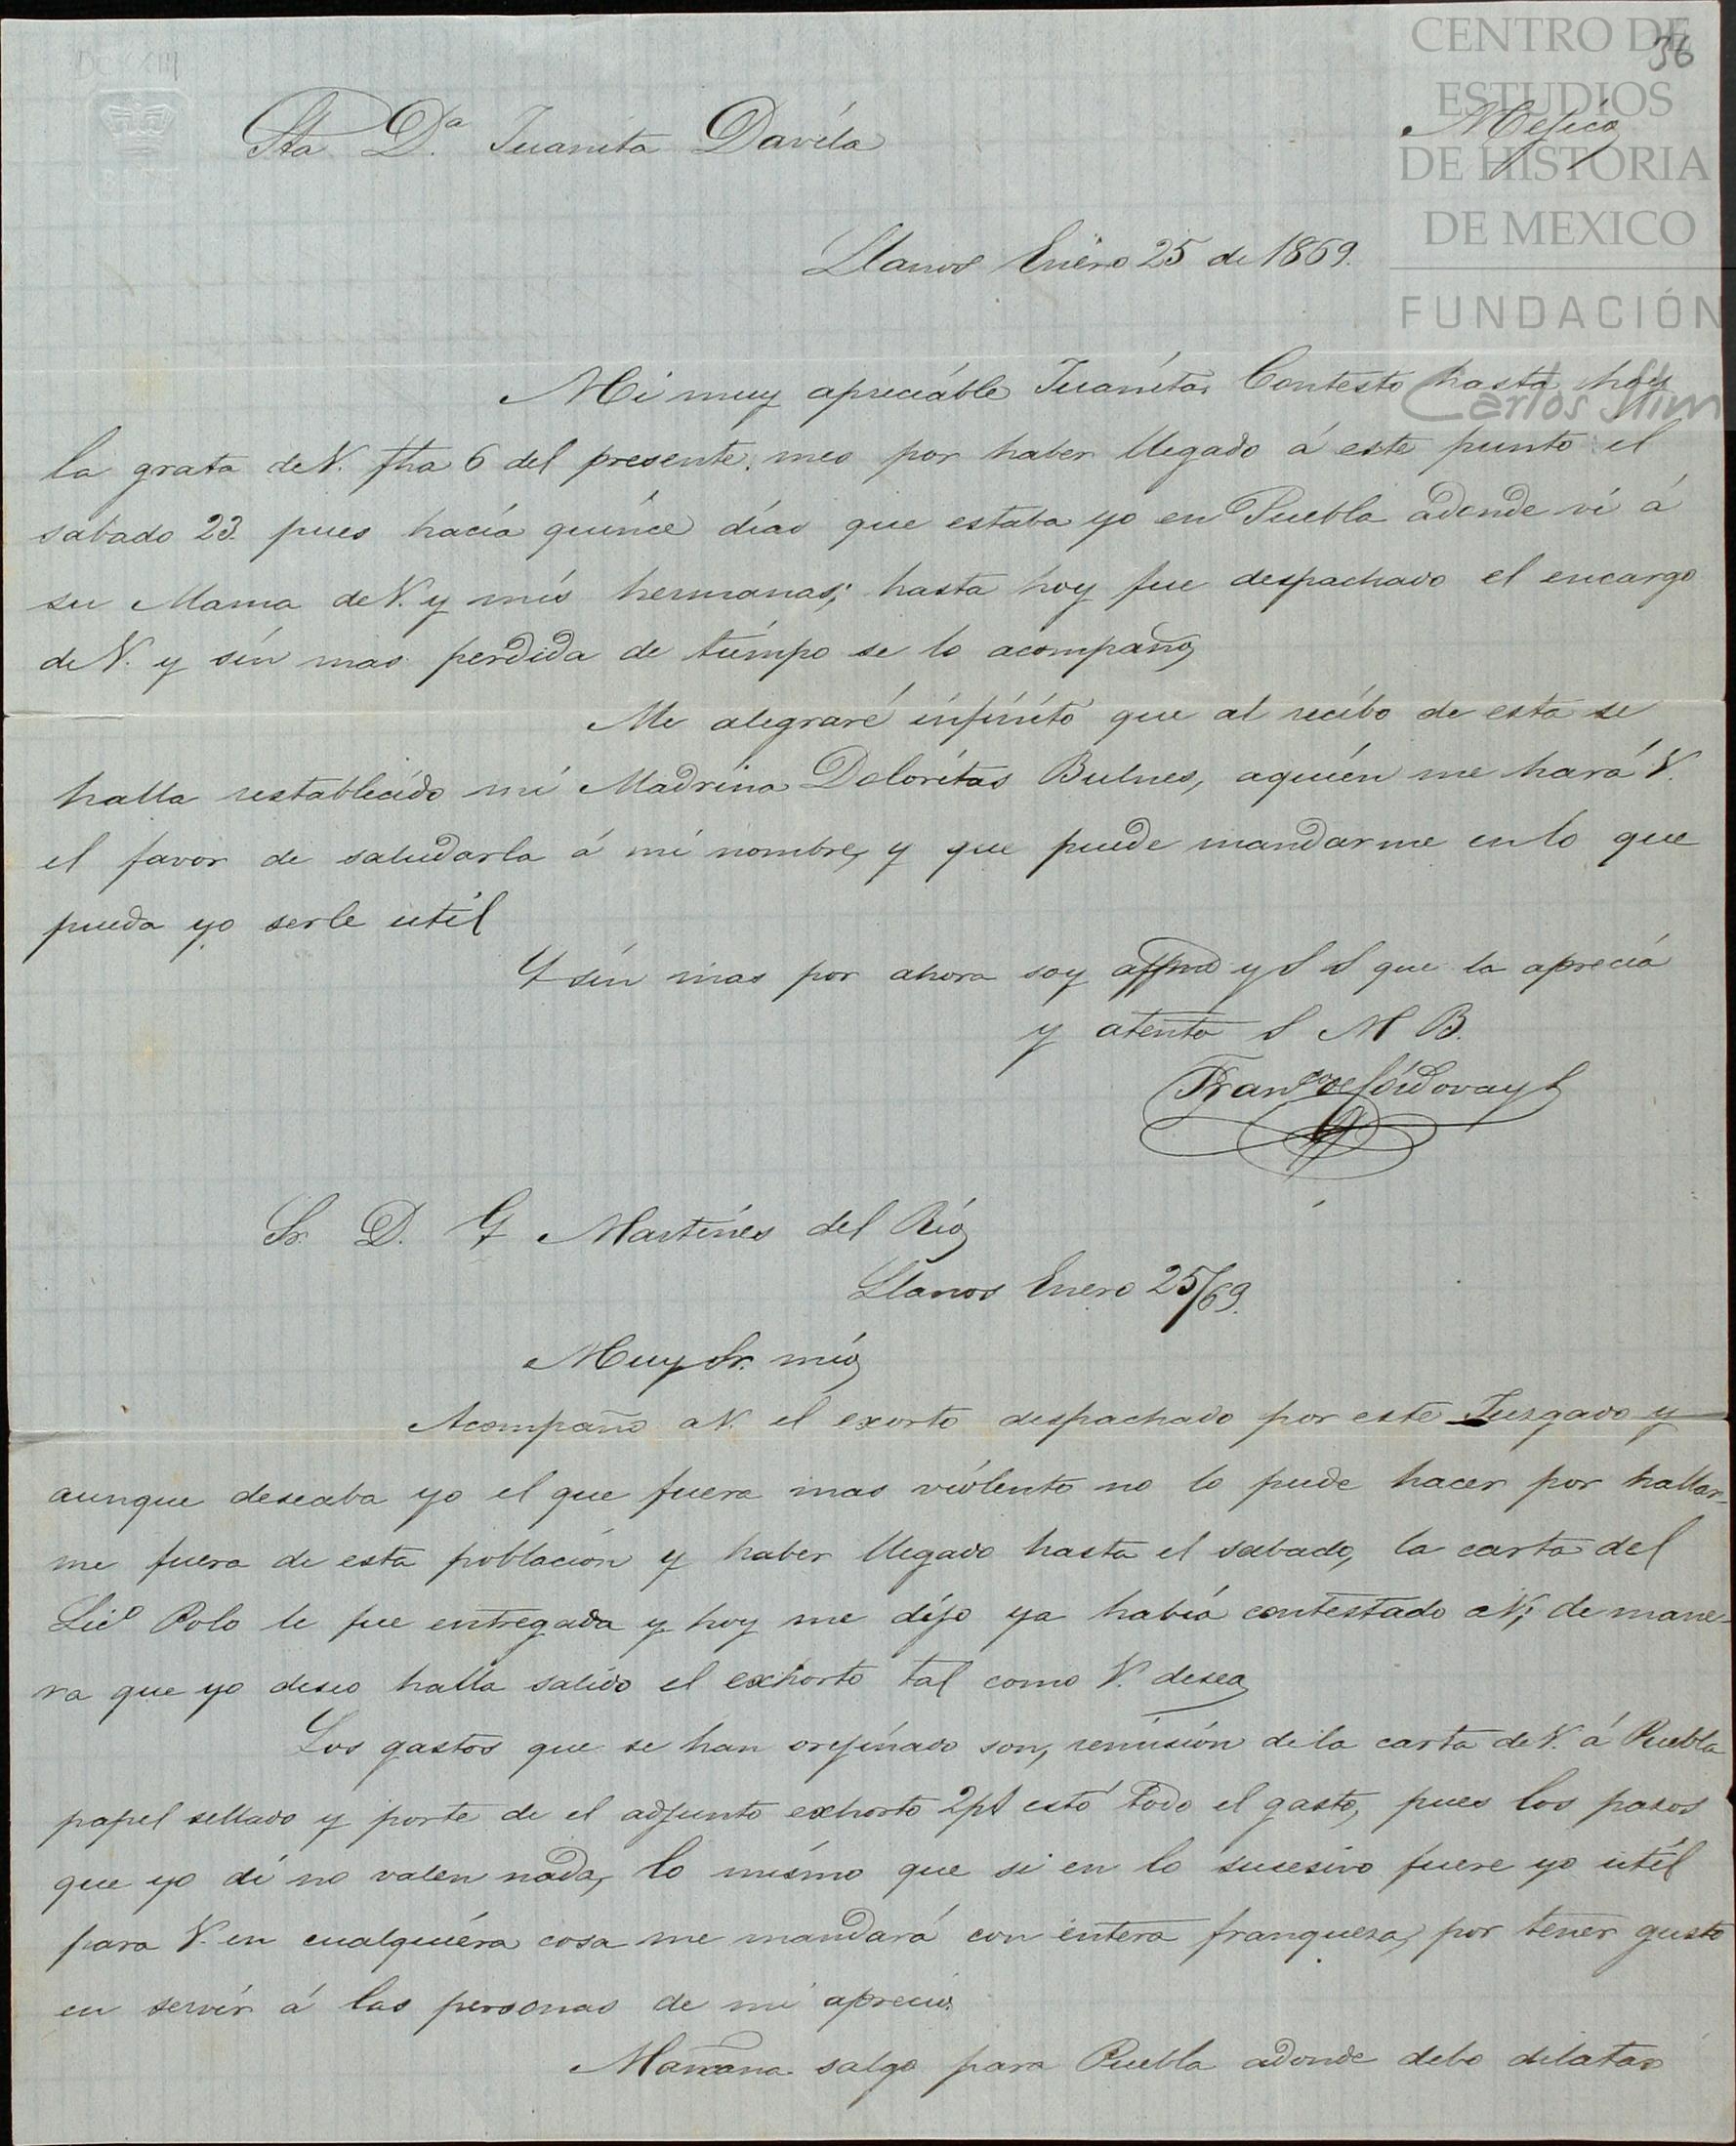 36
CENTRO DE
ESTUDIOS
DE HISTORIA
DE MEXICO
FUNDACIÓN
Carlos Slim
Sta D.ª Juanita Davila
Mejico
Llanos Enero 25 de 1869.
Mi muy apreciable Juanita, Contesto hasta hoy
la grata de V. fha 6 del presente mes por haber llegado á este punto el
sabado 23. pues hacía quince días que estaba yo en Puebla adonde ví á
su Mama de V. y mis hermanas; hasta hoy fue despachado el encargo
de V. y sin mas perdida de tiempo se lo acompaño,
Me alegraré infinito que al recibo de esta se
halla restablecido mi Madrina Doloritas Bulnes, aquién me hará V.
el favor de saludarla á mi nombre, y que puede mandarme en lo que
pueda yo serle util
Y sin mas por ahora soy affmo y S S que la aprecia
y atento S M B.
Fran.co de Córdova y
Sr. D. G Martines del Río,
Llanos Enero 25/69.
Muy Sr. mio,
Acompaño a V. el exorto despachado por este Juzgado y
aunque deseaba yo el que fuera mas violento no lo pude hacer por hallar-
me fuera de esta poblacion y haber llegado hasta el sabado, la carta del
Licº Polo le fue entregada y hoy me dijo ya había contestado a V; de mane-
ra que yo deseo halla salido el exhorto tal como V. desea,
Los gastos que se han orijinado son, remision de la carta de V. á Puebla
papel sellado y porte de el adjunto exhorto 2ps esto todo el gasto, pues los pasos
que yo dí no valen nada, lo mismo que si en lo sucesivo fuere yo util
para V. en cualquiera cosa me mandará con entera franqueza, por tener gusto
en servir á las personas de mi aprecio.
Mañana salgo para Puebla adonde debo dilatar